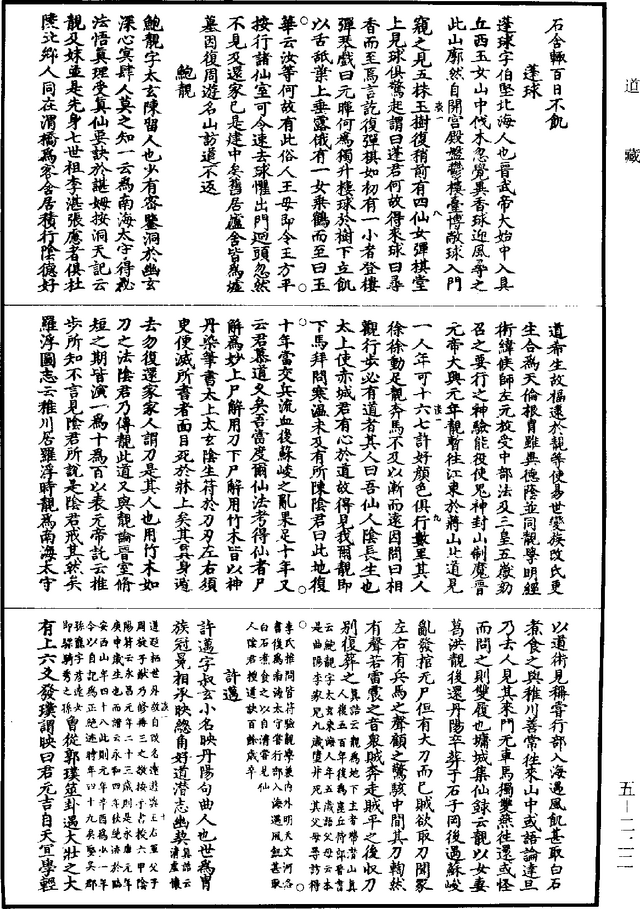 道藏
石含輒百日不飢
蓬球
蓬球字伯堅北海人也晉武帝太始中入具
丘西玉女山中伐木忽覺異香球迎風尋之
此山廓然自開宮殿盤鬱樓臺博敞球入門
窺之見五株玉樹復稍前有四仙女彈棋堂
上見球俱驚起謂曰蓬君何故得來球曰尋
香而至焉言訖復彈棋如初有一小者登樓
彈琴戲曰元暉何為獨升樓球於樹下立飢
以舌舐葉上垂露俄有一女乘鶴而至曰玉
華云汝等何故有此俗人王母即令王方平
按行諸仙室可令速去球懼出門迴頭忽然
不見及還家已是建中矣舊居廬舍皆為墟
墓因復周遊名山訪道不返
鮑靚
鮑靚字太玄陳留人也少有容鑒洞於幽玄
深心冥肆人莫之知一云為南海太守得祕
法悟真理受真仙要訣於諶姆按洞天記云
靚及妹並是先身七世祖李湛張慮者俱杜
陵北鄉人同在渭橋為客舍居積行陰德好
道希生故福逮於靚等使易世變族改氏更
生合為天倫根胄雖異德陰並同靚學明經
術緯候師左元放受中部法及三皇五嶽劾
召之要行之神驗能役使鬼神封山制魔晉
元帝大興元年靚暫往江東於蔣山北道見
一人年可十六七許好顏色俱行數里其人
徐徐動足靚奔馬不及以漸而遠因問曰相
觀行步必有道者其人曰吾仙人陰長生也
太上使赤城君有心於道故得見我爾靚即
下馬拜問寒溫未及有所陳陰君曰此地復
十年當交兵流血後蘇峻之亂果足十年又
云君慕道久矣吾當度爾仙法考得仙者尸
解為妙上尸解用刀下尸解用竹木皆以神
丹染筆書太上太玄陰生符於刀刃左右須
臾便滅所書者面目死於牀上矣其真身遁
去勿復還家家人謂刀是其人也用竹木如
刀之法陰君乃傳靚此道又與靚論晉室脩
短之期皆演一為十為百以表元帝託云推
步所知不言見陰君所說是陰君戒其然矣
羅浮圖志云稚川居羅浮時靚為南海太守
以道術見稱嘗行部入海遇風飢甚取白石
煮食之與稚川善常往來山中或語論達旦
乃去人見其來門无車馬獨雙燕往還或怪
而問之則雙履也墉城集仙錄云靚以女妻
葛洪靚後還丹陽卒葬于石子岡後遇蘇峻
亂發棺无尸但有大刀而已賊欲取刀聞冢
左右有兵馬之聲顧之驚駭中間其刀訇然
有聲若雷震之音衆賊奔走賊平之後收刀
別復葬之
許邁
許邁字叔玄小名映丹陽句曲人也世為胄
族冠冕相承映總角好道潛志幽契
曾從郭璞筮卦遇大壯之大
有上六爻發璞謂映曰君元吉自天宜學輕
五－二二二